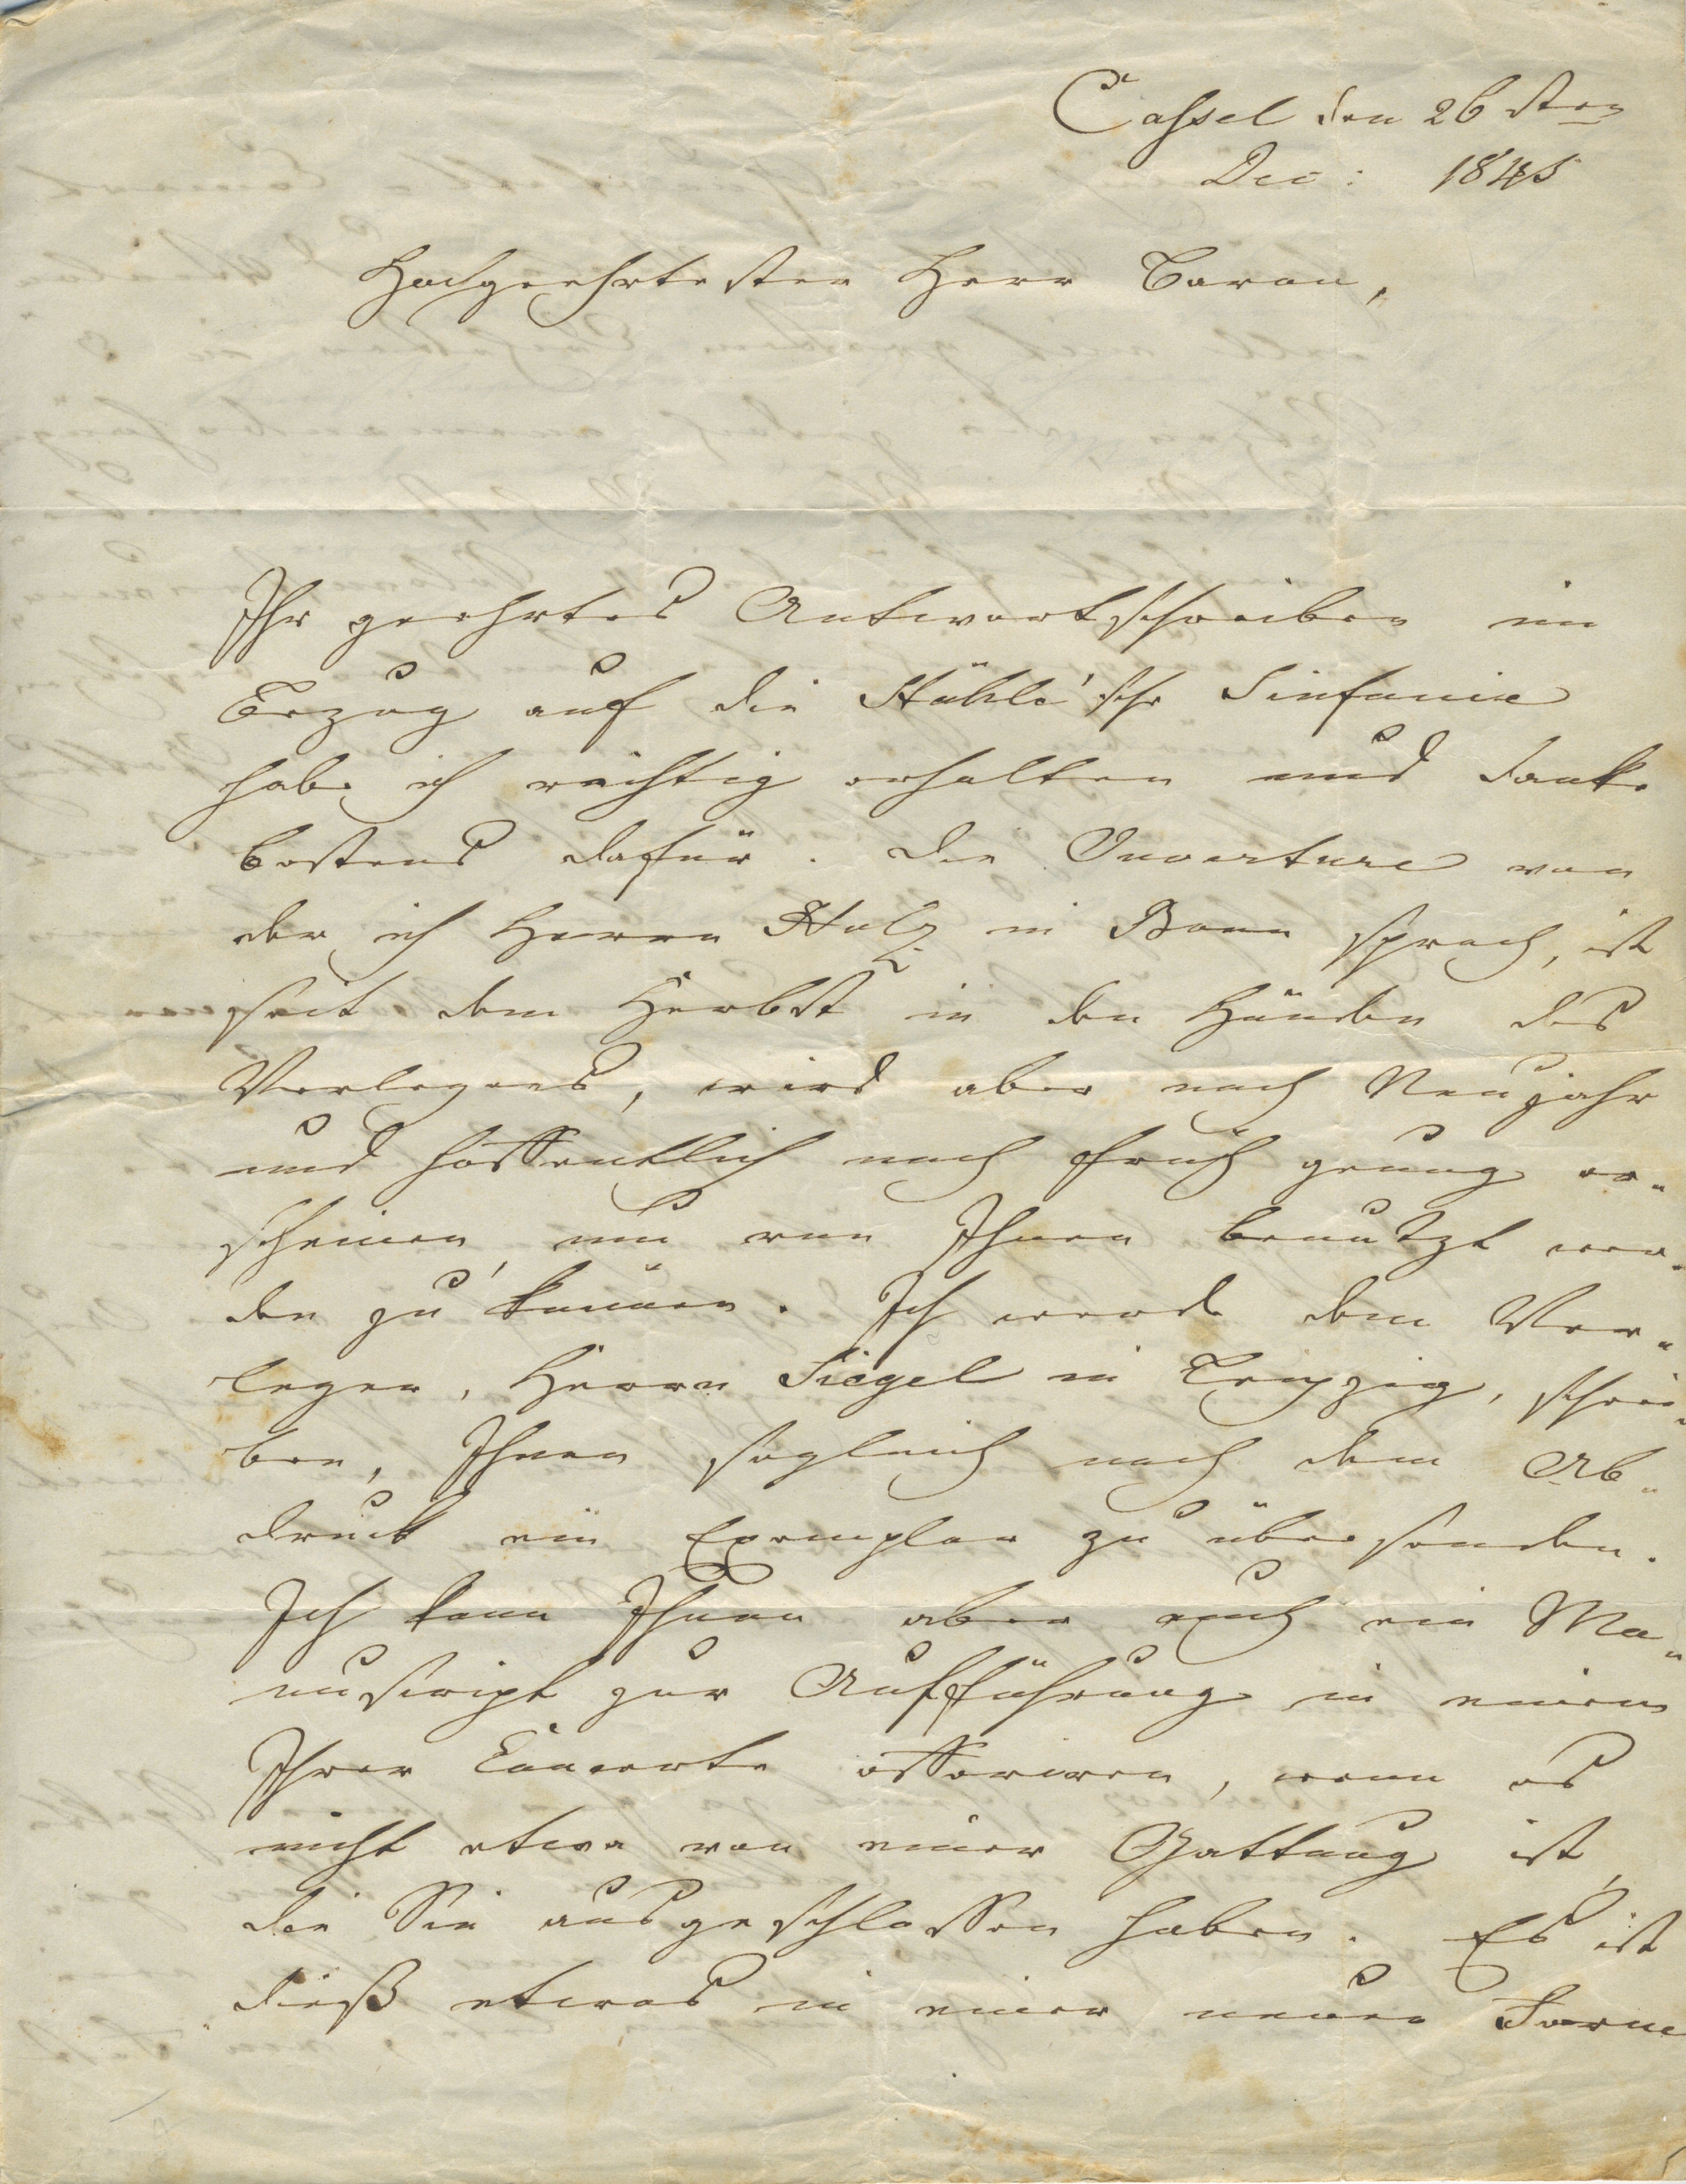 Cassel den 26sten
Dec: 1845
Hochgeehrtester Herr Baron,
Ihr geehrtes Antwortschreiben in
Bezug auf die Stähle'sche Sinfonie
habe ich richtig erhalten und danke
bestens dafür. Die Ouverture von
der ich Herrn Holz in Bonn sprach, ist
seit dem Herbst in den Händen des
Verlegers, wird aber nach Neujahr
und hoffentlich noch früh genug er-
scheinen, um von Ihnen benutzt wer-
den zu können. Ich werde dem Ver-
leger, Herrn Siegel in Leipzig, schrei-
ben, Ihnen sogleich nach dem Ab-
druck ein Exemplar zu übersenden.
Ich kann Ihnen aber auch ein Ma-
nuscript zur Aufführung in einem
Ihrer Concerte offeriren, wenn es
nicht etwa von einer Gattung ist,
die Sie ausgeschlossen haben. Es ist
dieß etwas in einer neuen Form